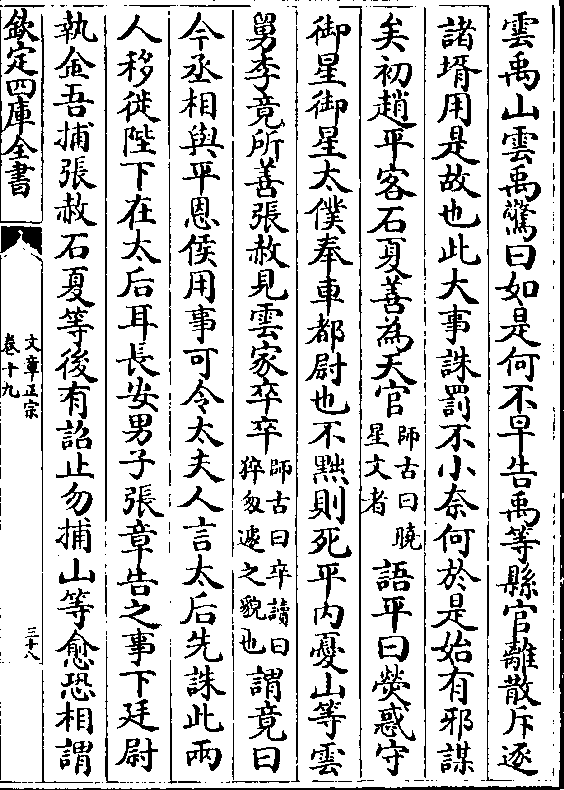 雲禹山雲禹驚曰如是何不早告禹等縣官離散斥逐
諸壻用是故也此大事誅罰不小奈何於是始有邪謀
矣初趙平客石夏善為天官師古曰曉星文者語平曰熒惑守
御星御星太僕奉車都尉也不黜則死平内憂山等雲
舅李竟所善張赦見雲家卒卒師古曰卒讀曰猝匆遽之貌也謂竟曰
今丞相與平恩侯用事可令太夫人言太后先誅此兩
人移徙陛下在太后耳長安男子張章告之事下廷尉
執金吾捕張赦石夏等後有詔止勿捕山等愈恐相謂
欽定四庫全書
文章正宗
卷十九
三十八